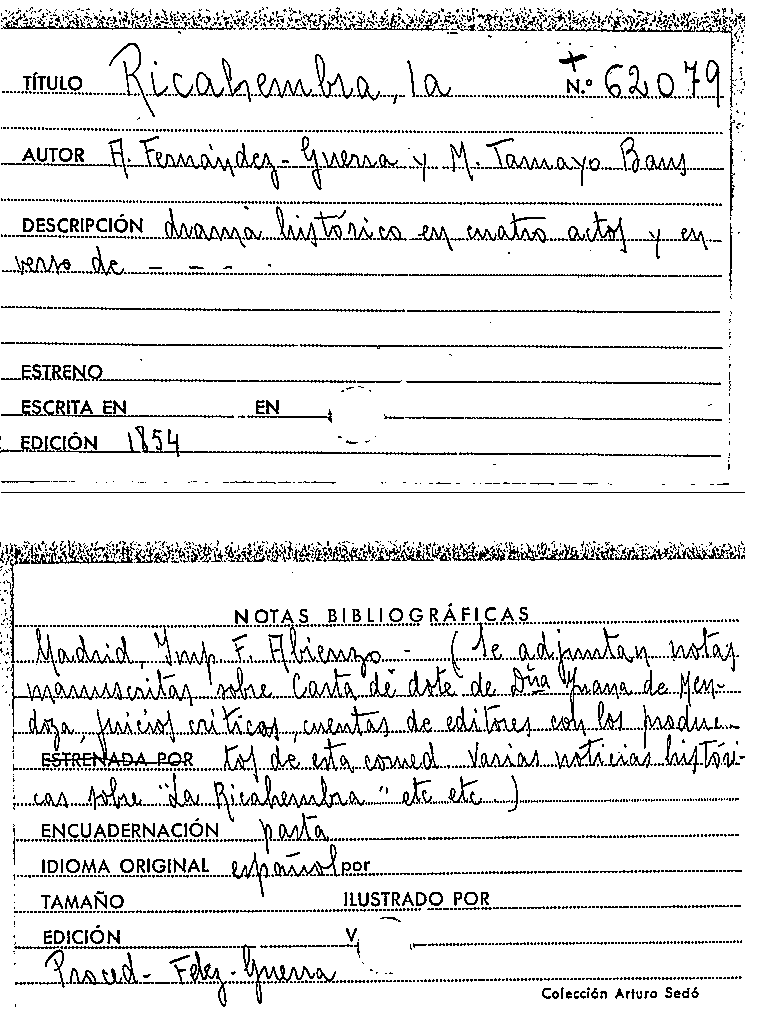 TÍTULO Ricahembra, la + N.º 62079
AUTOR A. Fernández-Guerra y M. Tamayo Baus
DESCRIPCIÓN drama histórico en cuatro actos y en
verso de - - - .
ESTRENO
ESCRITA EN EN
EDICIÓN 1854
NOTAS BIBLIOGRÁFICAS
Madrid, Imp. F. Abienzo - (Se adjuntan notas
manuscritas sobre Carta de dote de Dña Juana de Men-
doza, juicios críticos, cuentas de editores con los produc-
ESTRENADA POR tos de esta comed. Varias noticias históri-
cas sobre "La Ricahembra" etc etc )
ENCUADERNACIÓN pasta
IDIOMA ORIGINAL español por
TAMAÑO ILUSTRADO POR
EDICIÓN V
Proced- Fdez-Guerra
Colección Arturo Sedó